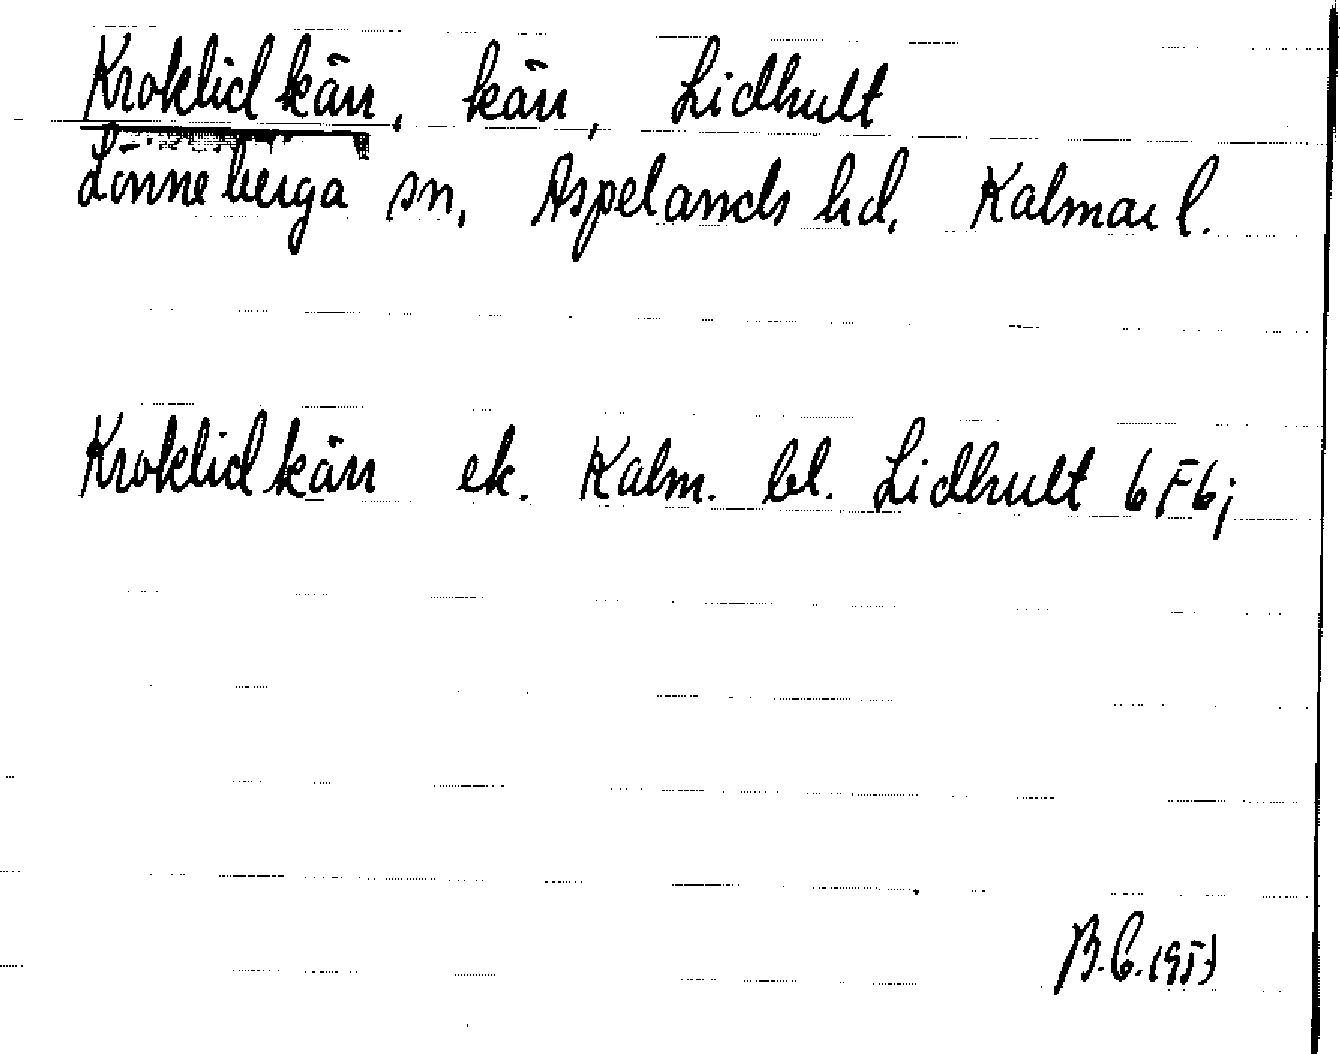 Kroklidkärr, kärr, Lidhult
Lönneberga sn, Aspelands hd, Kalmar l.
Kroklidkärr ek. Kalm. bl. Lidhult 6F6j
B.C.